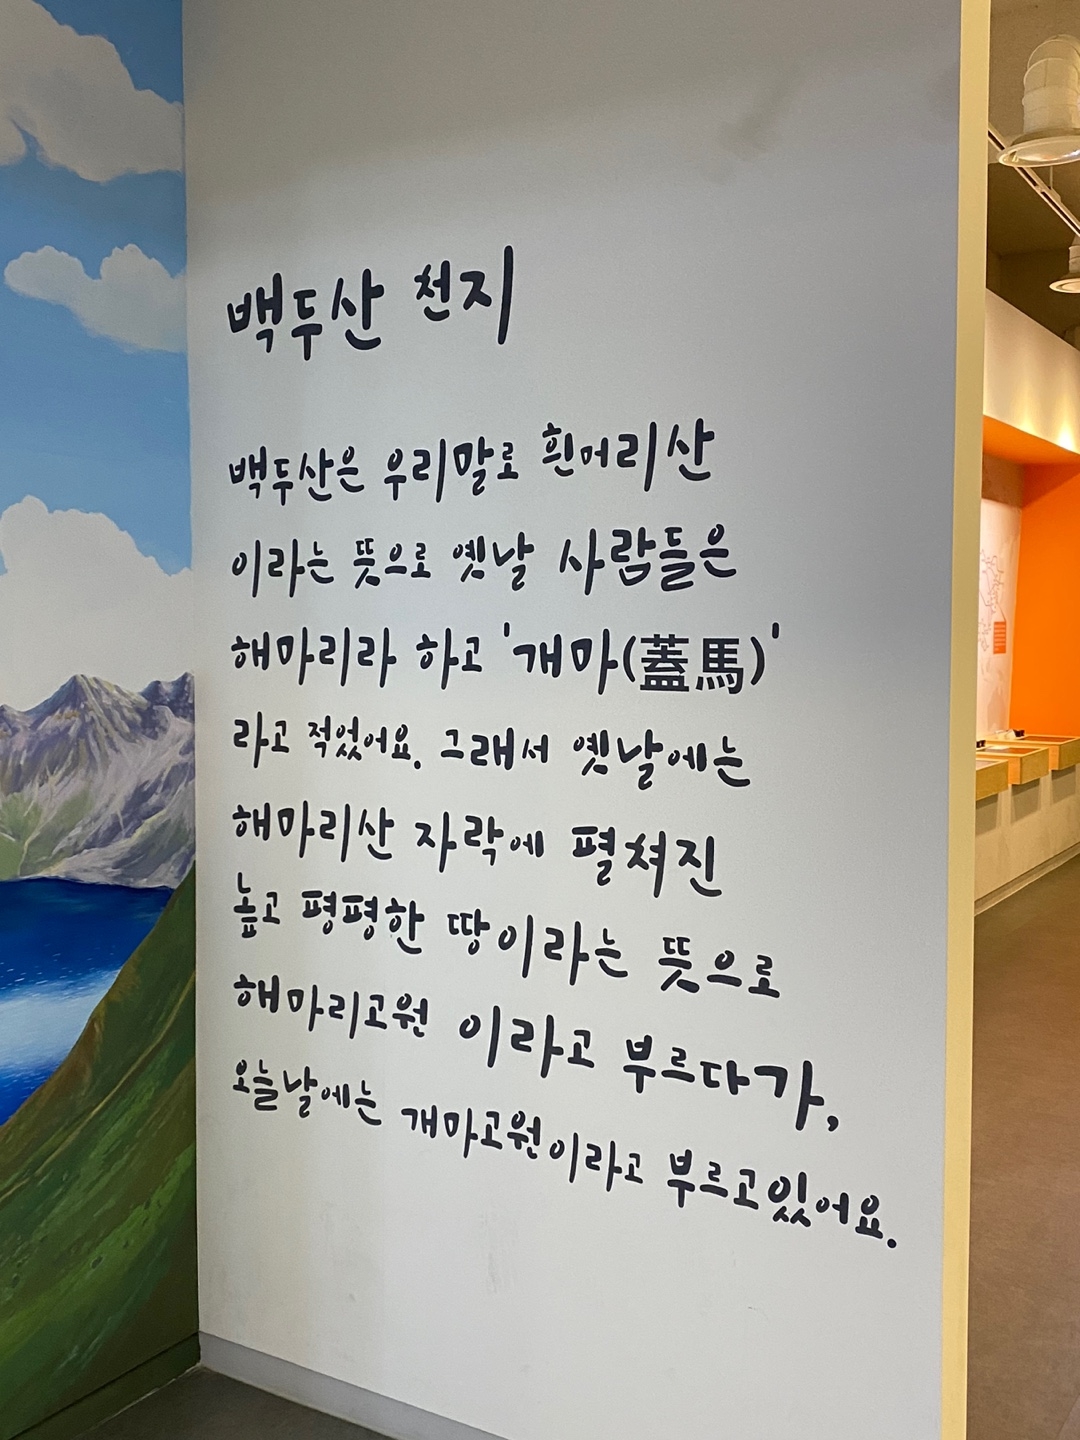 백두산 천지
백두산은 우리말로 흰머리산
이라는 뜻으로 옛날 사람들은
해마리라 하고 '개마(蓋馬)'
라고 적었어요. 그래서 옛날에는
해마리산 자락에 펼쳐진
높고 평평한 땅이라는 뜻으로
해마리고원 이라고 부르다가,
오늘날에는 개마고원이라고 부르고있어요.